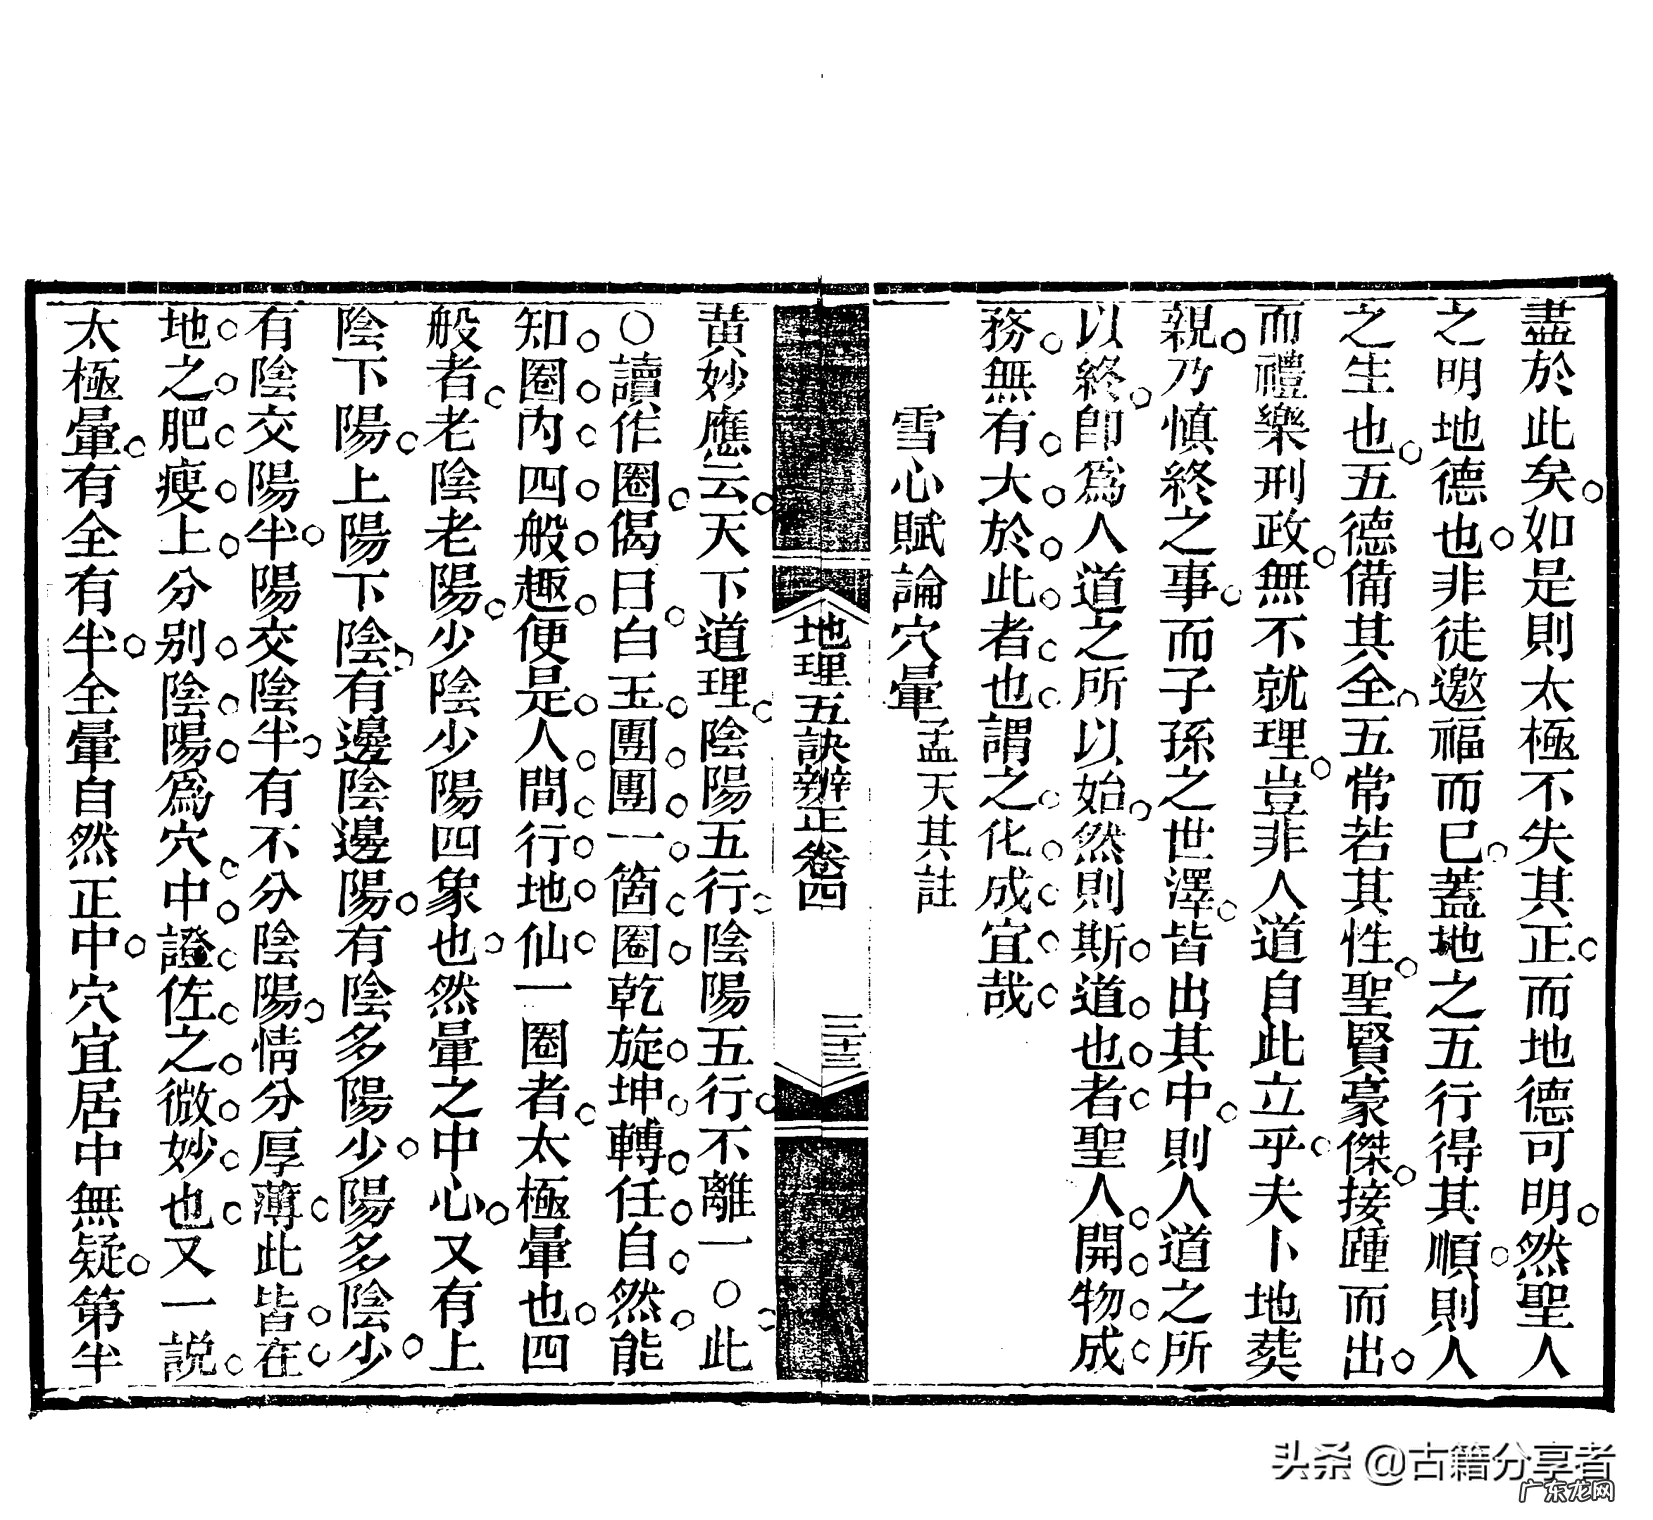 盡於此矣如是則太極不失其正而地德可明然聖人
之明地德也非徒邀福而已蓋地之五行得其順則人
之生也五德備其全五常若其性聖賢豪傑接踵而出
而禮樂刑政無不就理豈非人道自此立乎夫卜地葬
親乃慎終之事而子孫之世澤皆出其中則人道之所
以終即爲人道之所以始然則斯道也者聖人開物成
務無有大於此者也謂之化成宜哉
雪心賦論穴暈孟天其註
地理五訣辨正卷四
三十三
黄妙應云天下道理陰陽五行陰陽五行不離一〇此
〇讀作圈偈曰白玉團團一箇圈乾旋坤轉任自然能
知圈內四般趣便是人間行地仙一圈者太極暈也四
般者老陰老陽少陰少陽四象也然暈之中心又有上
陰下陽上陽下陰有邊陰邊陽有陰多陽少陽多陰少
有陰交陽半陽交陰半有不分陰陽情分厚薄此皆在
地之肥瘦上分别陰陽爲穴中證佐之微妙也又一説
太極暈有全有半全暈自然正中穴宜居中無疑第半
头条 @古籍分享者
广东龙网